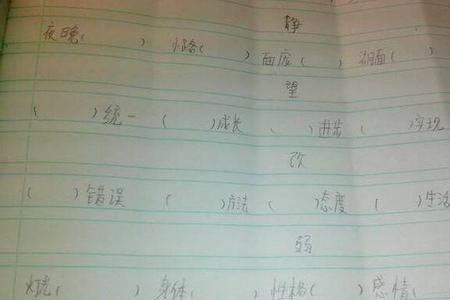 静
夜晚( ) 小路( ) 面庞( ) 湖面( )
望
( )统一 ( )成长 ( )进步 ( )实现
改
( )错误 ( )方法 ( )态度 ( )生活
弱
灯光( ) 身体( ) 性格( ) 感情(